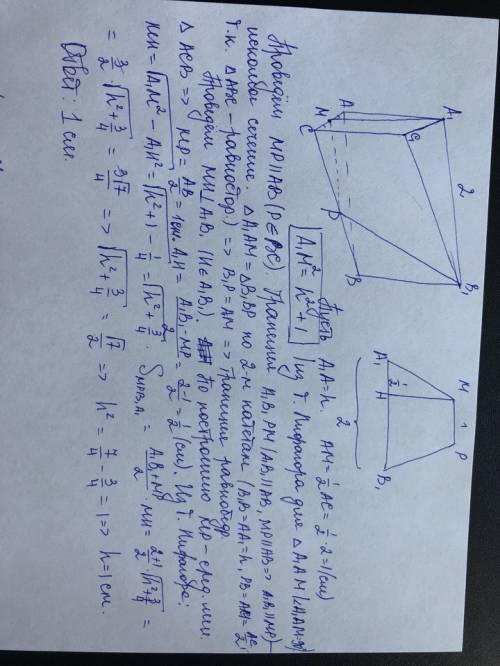 A₁ 2 B₁
A C₁
M
C
P B
M 1 P
A₁ 1/2 H B₁
2
Пусть A₁A=h. AM=1/2 AC=1/2·2=1(см)
A₁M²=h²+1 (из т. Пифагора для △A₁AM
Проведём MP||AB (P∈BC). Трапеция A₁B₁PM (A₁B₁||AB, MP||AB=> A₁B₁||MP)-
искомое сечение △A₁AM=△B₁BP по 2-м катетам (B₁B=AA₁=h, PB=AM=AC/2,
т.к. △ABC-равностор.) => B₁P=AM => трапеция равнобедр.
Проведём MH⊥A₁B₁ (H∈A₁B₁). По построению MP-сред. лин.
△ACB => MP=AB/2=1см. A₁H=(A₁B₁-MP)/2=(2-1)/2=1/2(см). Из т. Пифагора:
MH=√(A₁M²-A₁H²)=√(h²+1-1/4)=√(h²+3/4). S_MPB₁A₁=(A₁B₁+MP)/2·MH=(2+1)/2·√(h²+3/4)=
=3/2·√(h²+3/4)=3√7/4 => √(h²+3/4)=√7/2 => h²=7/4-3/4=1=> h=1см.
Ответ: 1 см.